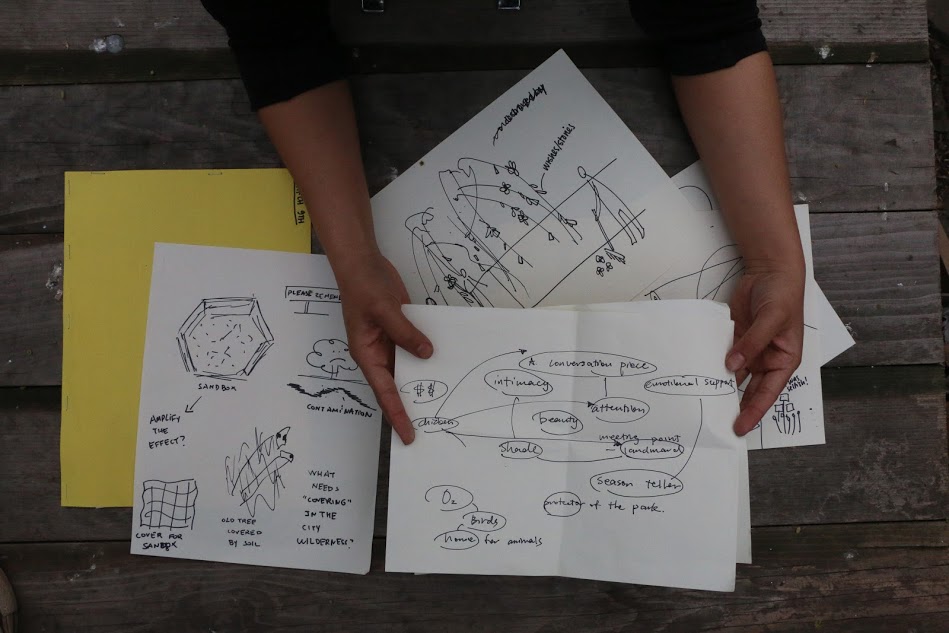 wishes/stories
PLEASE REMEM
SANDBOX
CONTAMINATION
AMPLIFY
THE
EFFECT?
COVER FOR
SANDBOX
OLD TREE
COVERED
BY SOIL
WHAT
NEEDS
"COVERING"
IN THE
CITY
WILDERNESS?
$$
A conversation piece
intimacy
emotional support
attention
beauty
meeting point
shade
landmark
season teller
protector of the park.
O₂
Birds
home for animals